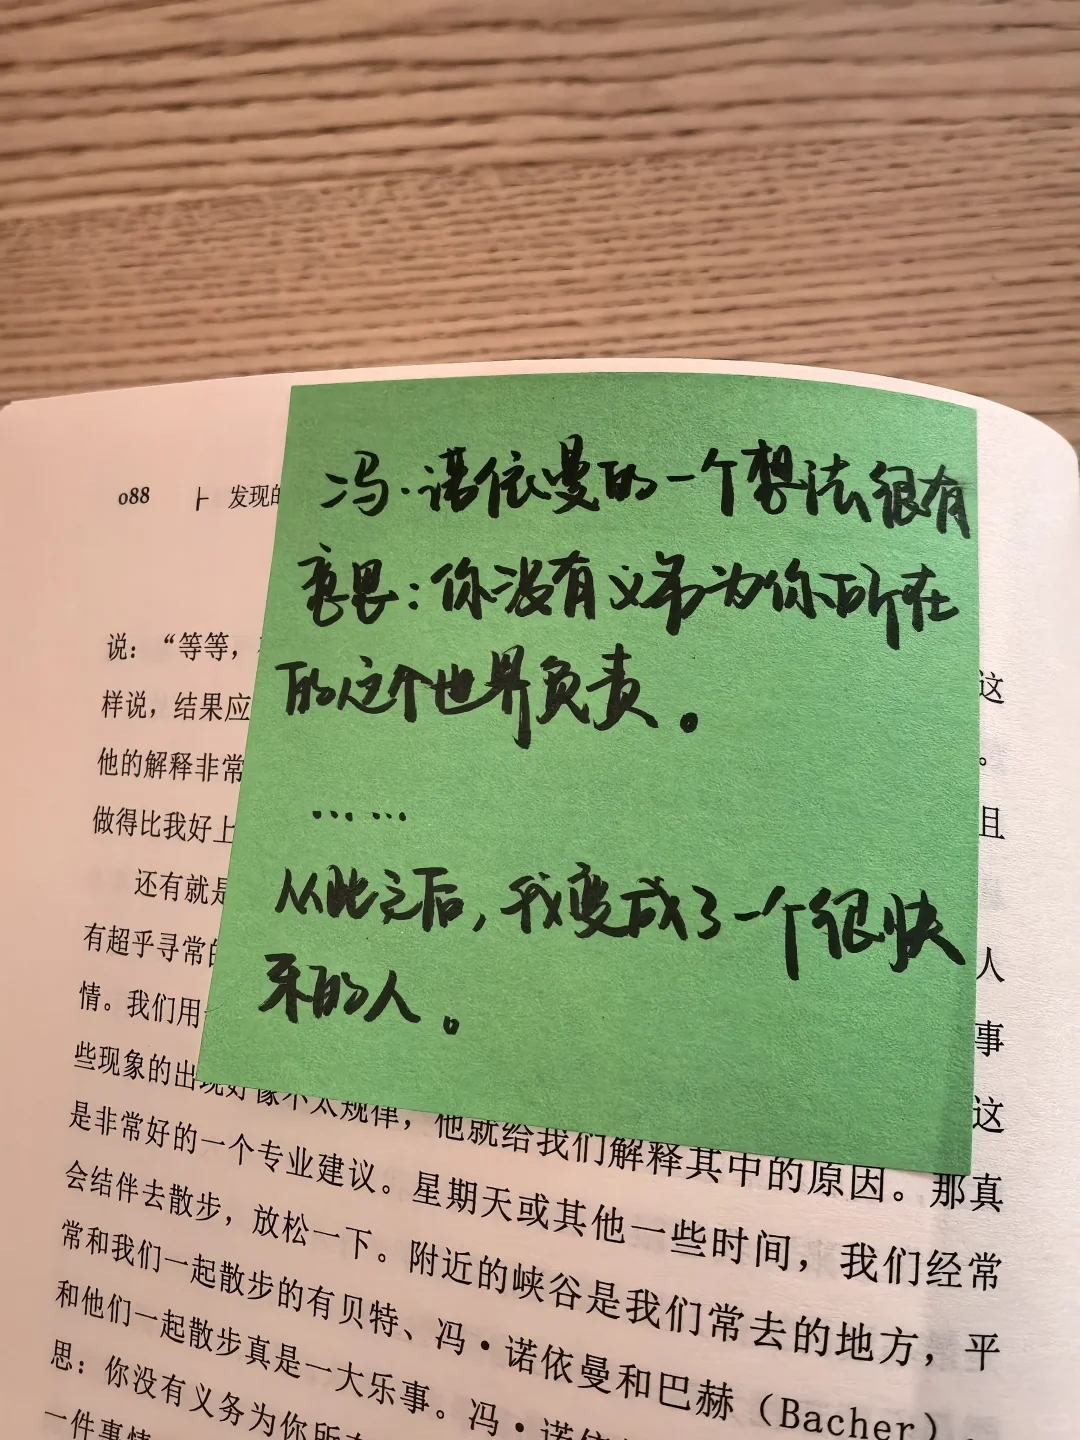 088 ⊢ 发现的
冯·诺依曼的一个想法很有
意思：你没有义务为你所在
的这个世界负责。
……
从此之后，我变成了一个很快
乐的人。
说：“等等，
这
样说，结果应
。
他的解释非常
做得比我好上
且
还有就是
有超乎寻常的
人
情。我们用
事
些现象的出现好像不太规律，他就给我们解释其中的原因。那真
这
是非常好的一个专业建议。星期天或其他一些时间，我们经常
会结伴去散步，放松一下。附近的峡谷是我们常去的地方，平
常和我们一起散步的有贝特、冯·诺依曼和巴赫（Bacher）。
和他们一起散步真是一大乐事。冯·诺依
思：你没有义务为你所在
一件事情